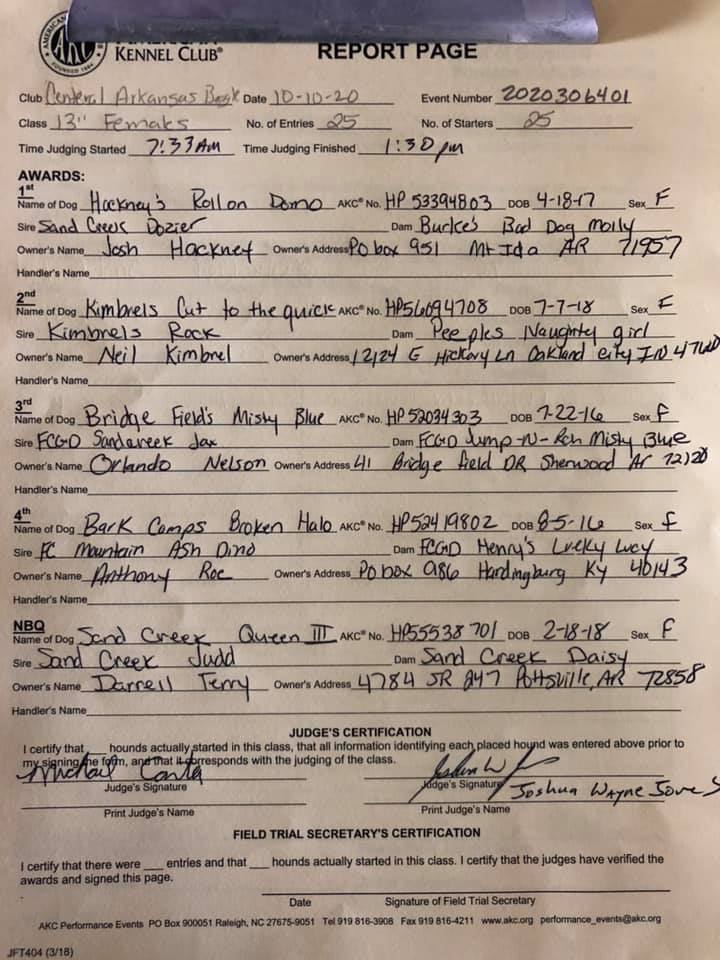 AMERICAN
KENNEL CLUB®
AKC
FOUNDED 1884
REPORT PAGE
Club Central Arkansas Date 10-10-20 Event Number 2020306401
Class 13" Females No. of Entries 25 No. of Starters 25
Time Judging Started 7:33 AM Time Judging Finished 1:30 pm
AWARDS:
1st
Name of Dog Hackney's Roll on Domo AKC® No. HP 53394803 DOB 4-18-17 Sex F
Sire Sand Creek Dozier Dam Burke's Bad Dog Molly
Owner's Name Josh Hackney Owner's Address PO box 951 Mt Ida AR 71957
Handler's Name
2nd
Name of Dog Kimbrels Cut to the quick AKC® No. HP56094708 DOB 7-7-18 Sex F
Sire Kimbrels Rock Dam Peeples Naughty girl
Owner's Name Neil Kimbrel Owner's Address 12124 E Hickory Ln Oakland City IN 47660
Handler's Name
3rd
Name of Dog Bridge Field's Misty Blue AKC® No. HP52034303 DOB 7-22-16 Sex F
Sire FCGD Sandcreek Jax Dam FCGD Jump-N-Run Misty Blue
Owner's Name Orlando Nelson Owner's Address 41 Bridge field DR Sherwood Ar 72120
Handler's Name
4th
Name of Dog Bark Camps Broken Halo AKC® No. HP52419802 DOB 8-5-16 Sex f
Sire FC Mountain Ash Dino Dam FCGD Henry's Lucky Lucy
Owner's Name Anthony Roe Owner's Address PO box 986 Hardingburg KY 40143
Handler's Name
NBQ
Name of Dog Sand Creek Queen III AKC® No. HP55538701 DOB 2-18-18 Sex F
Sire Sand Creek Judd Dam Sand Creek Daisy
Owner's Name Darrell Terry Owner's Address 4784 SR 247 Pottsville, AR 72858
Handler's Name
JUDGE'S CERTIFICATION
I certify that ___ hounds actually started in this class, that all information identifying each placed hound was entered above prior to
my signing the form, and that it corresponds with the judging of the class.
Michael
Judge's Signature Judge's Signature
Joshua Wayne Jones
Print Judge's Name Print Judge's Name
FIELD TRIAL SECRETARY'S CERTIFICATION
I certify that there were ___ entries and that ___ hounds actually started in this class. I certify that the judges have verified the
awards and signed this page.
Date Signature of Field Trial Secretary
AKC Performance Events PO Box 900051 Raleigh, NC 27675-9051 Tel 919 816-3908 Fax 919 816-4211 www.akc.org performance_events@akc.org
JFT404 (3/18)